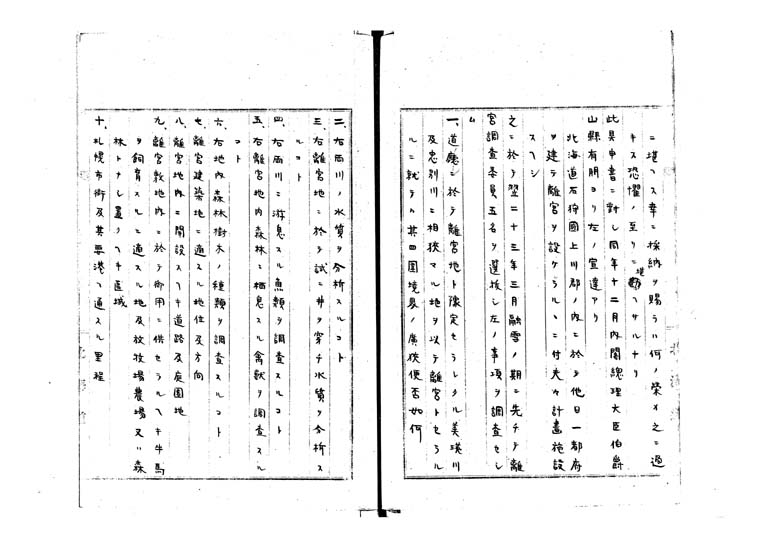 ニ堪ヘス幸ニ採納ヲ賜ラハ何ノ栄カ之ニ過
キス恐懼ノ至リニ堪ヘサルナリ
此具申書ニ対シ同年十二月内閣総理大臣伯爵
山縣有朋ヨリ左ノ宣達アリ
北海道石狩國上川郡ノ内ニ於テ他日一都府
ヲ建テ離宮ヲ設ケラルヽニ付夫々計畫施設
スヘシ
之ニ於テ翌二十三年三月融雪ノ期ニ先チテ離
宮調査委員五名ヲ選抜シ左ノ事項ヲ調査セシ
ム
一、道廳ニ於テ離宮地ト豫定セラレタル美瑛川
及忠別川ニ相狭マル地ヲ以テ離宮トセラル
ルニ就テハ其四囲境界ノ廣狭便否如何
二、右両川ノ水質ヲ分析スルコト
三、右離宮地ニ於テ試ニ井ヲ穿チ水質ヲ分析ス
ルコト
四、右両川ニ游息スル魚類ヲ調査スルコト
五、右離宮地内森林ニ栖息スル禽獣ヲ調査スル
コト
六、右地内森林樹木ノ種類ヲ調査スルコト
七、離宮建築地ニ適スル地位及方向
八、離宮地内ニ開設スヘキ道路及庭園地
九、離宮敷地内ニ於テ御用ニ供セラルヘキ牛馬
ヲ飼育スルニ適スル地及放牧場農場又ハ森
林トナシ置クヘキ区域
十、札幌市街及其要港ヘ通スル里程